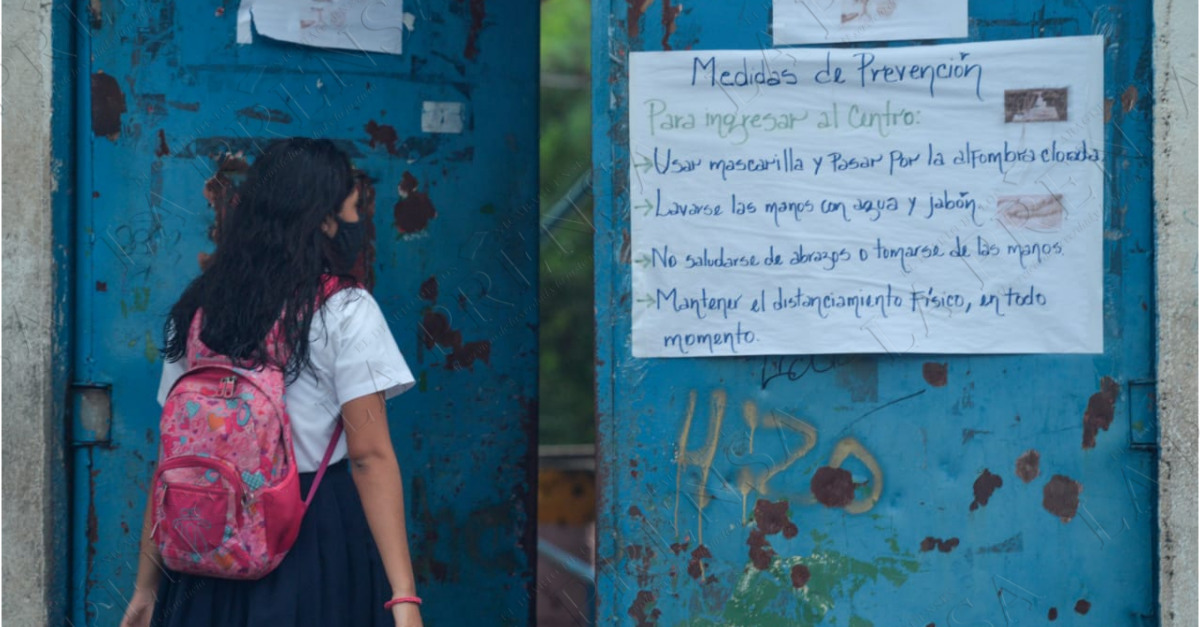 Medidas de Prevención
Para ingresar al Centro:
→Usar mascarilla y Pasar por la alfombra clorada.
→Lavarse las manos con agua y jabón
→No saludarse de abrazos o tomarse de las manos.
→Mantener el distanciamiento Físico, en todo
momento.
LA PRENSA